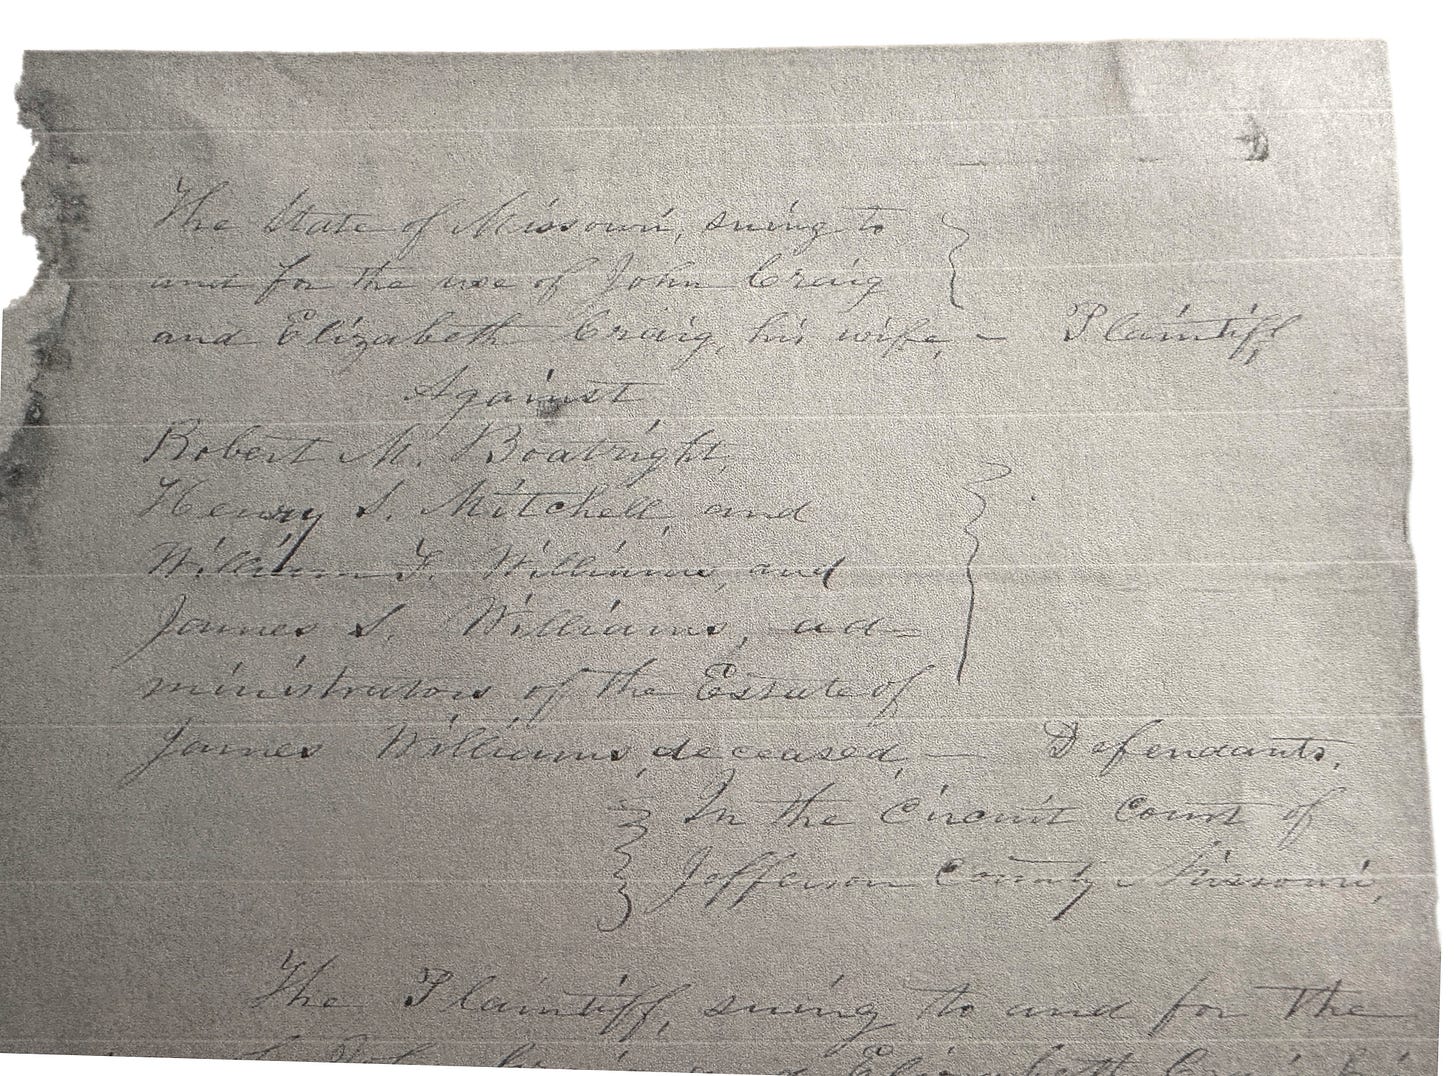 The State of Missouri, suing to
and for the use of John Craig
and Elizabeth Craig, his wife, – Plaintiff,
Against
Robert M. Boatright,
Henry S. Mitchell, and
William F. Williams, and
James S. Williams, ad=
ministrators of the Estate of
James Williams, deceased, – Defendants.
In the Circuit Court of
Jefferson County Missouri,
The Plaintiff, suing to and for the
John Elizabeth Craig